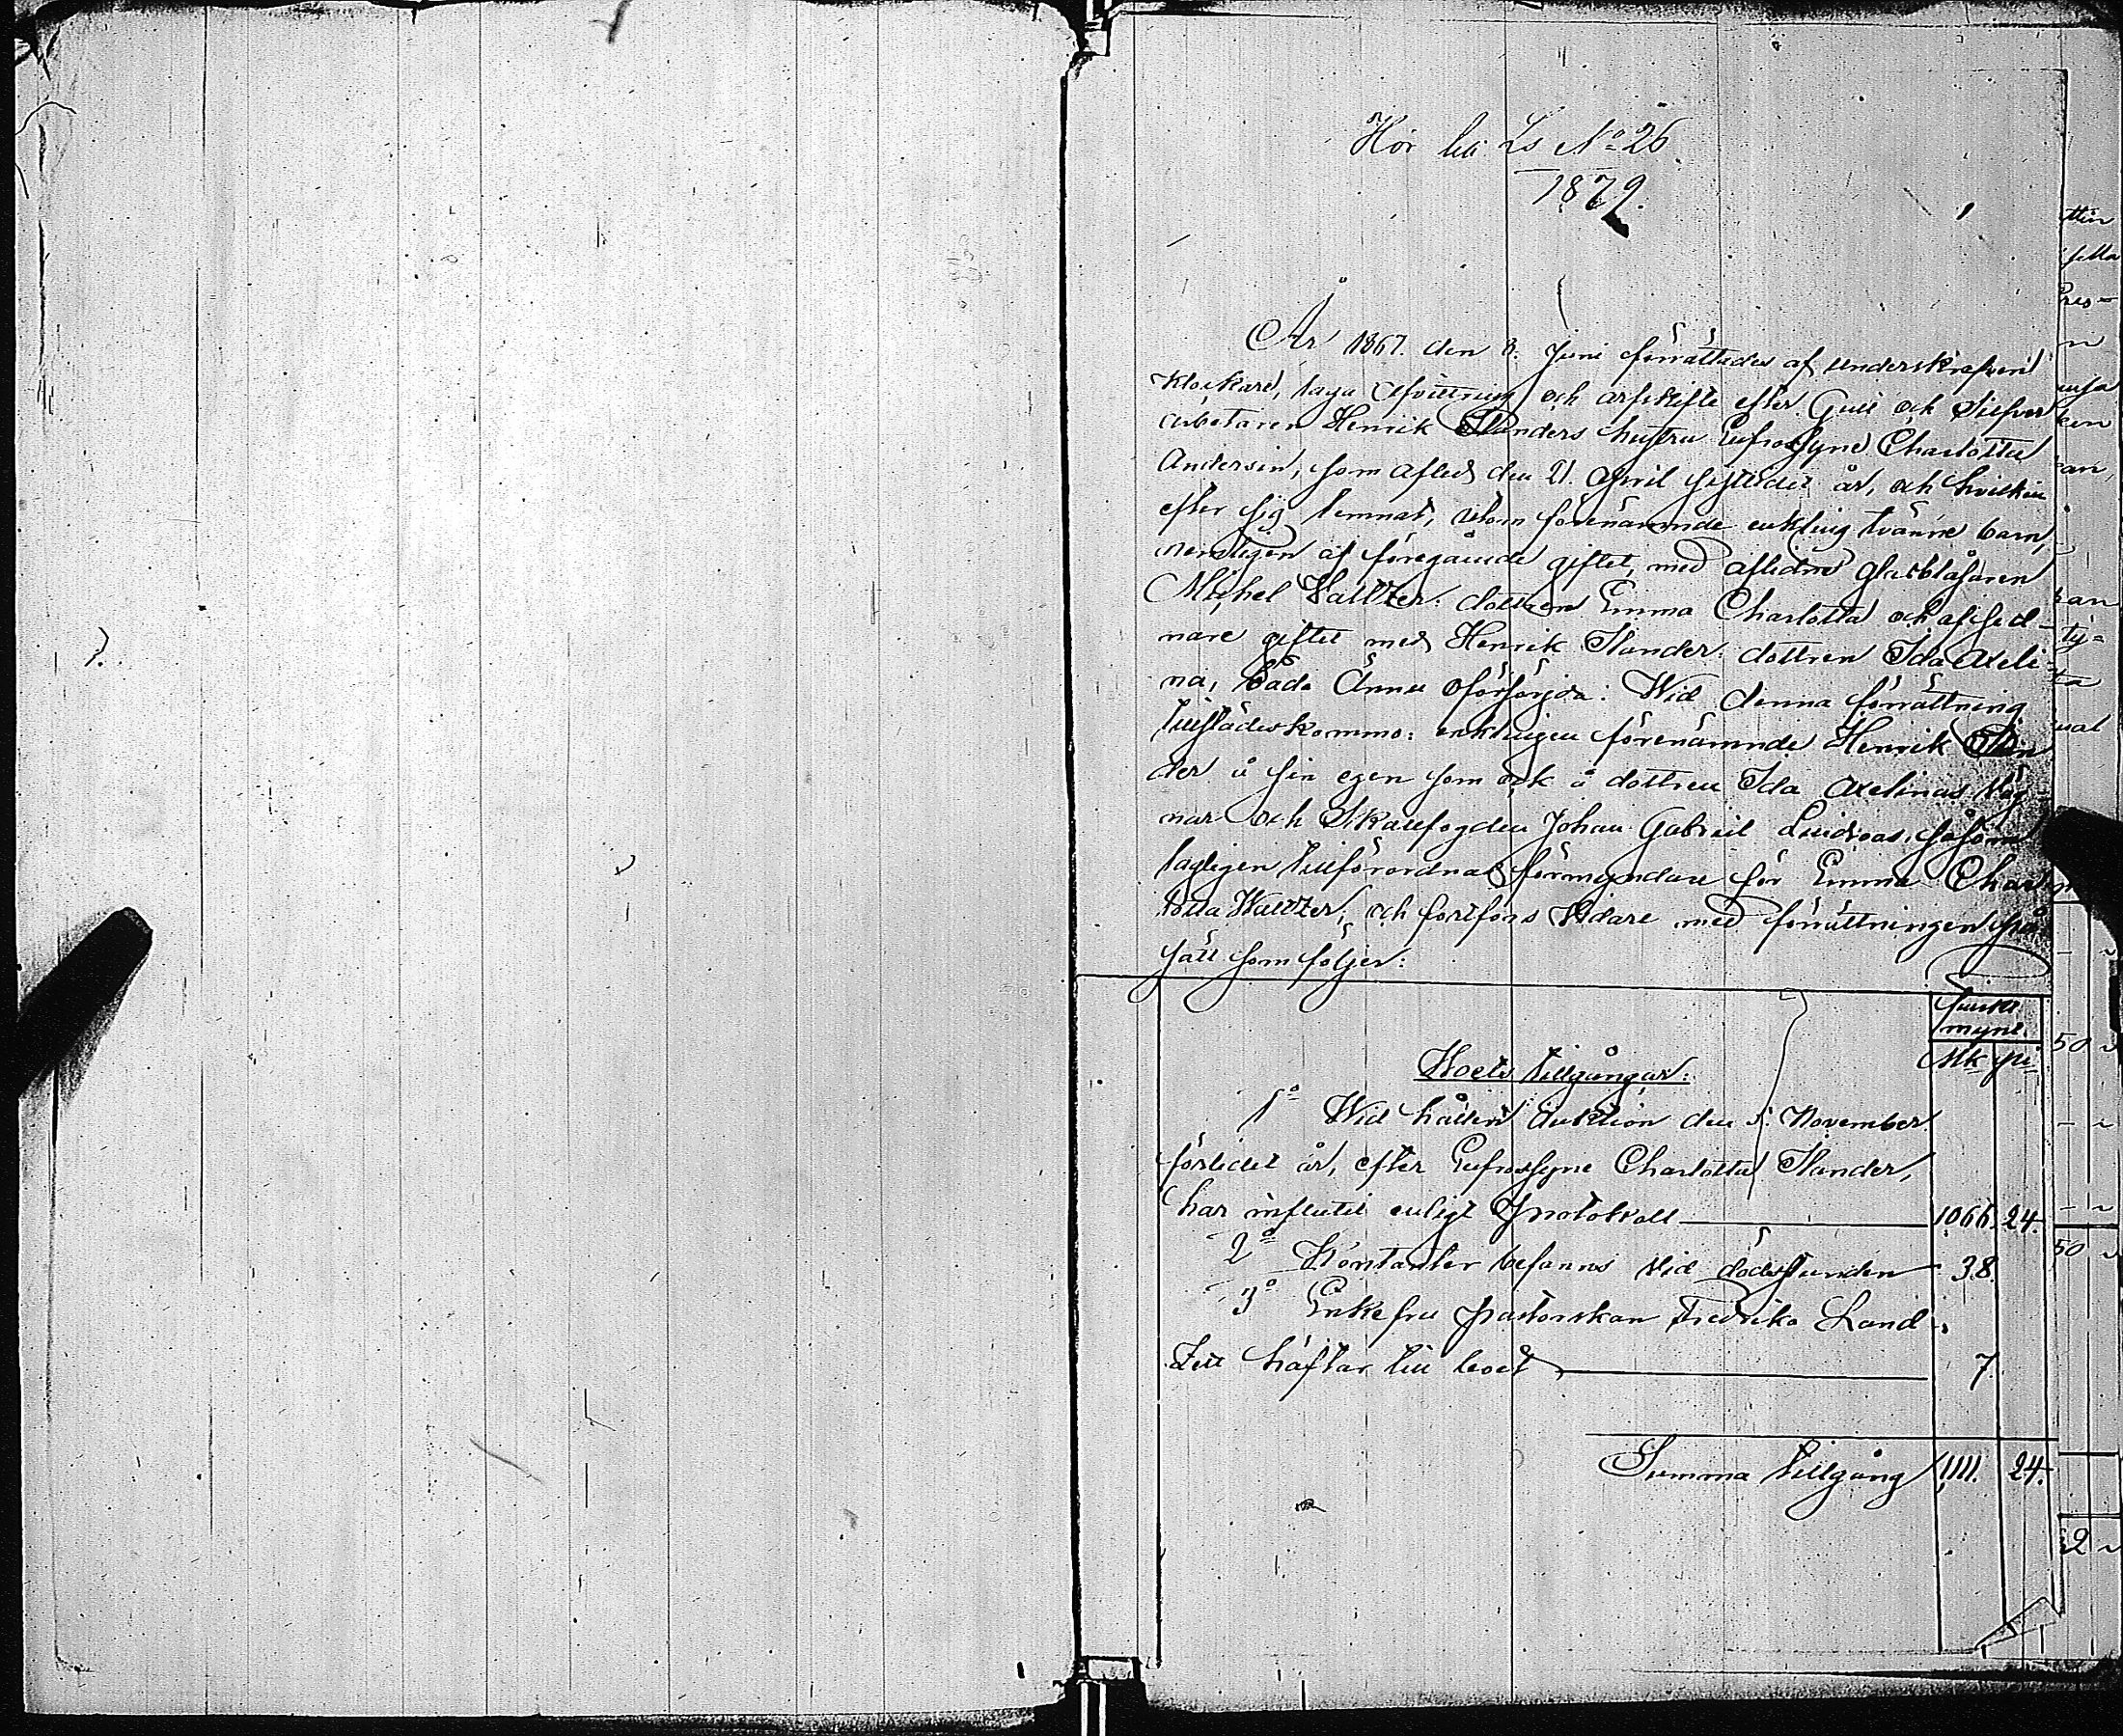 Hör till Ls No 26
1872.
År 1867. den 3. Juni förrättades af underskrefven
klockare, laga afvittring och arfskifte efter Gull och Silfver
arbetaren Henrik Slanders hustru Eufrosyne Charlotta
Andersin, som afled den 21. April sistlidet år, och hvilken
efter sig lemnat, utom förenämnde enkling tvänne barn,
nemligen af föregående giftet, med aflidne glasblåsaren
Michel Waltzer: dottren Emma Charlotta och af sed-
nare giftet med Henrik Slander: dottren Ida Axeli-
na, båda ännu oförsörjda: Wid denna förrättning
tillstädeskommo: enklingen förenämnde Henrik Slan
der å sin egen som ock å dottren Ida Axelinas väg-
nar och Skallfogden Johan Gabriel Lindroos, såsom
lagligen tillförordnad förmyndare för Emma Char
lotta Waltzer, och fortfors vidare med förrättningen på
sätt som följer:
Finskt
mynt.
Mk pi
Boets tillgångar:
1o Wid hållen auktion den 5. November
förlidet år, efter Eufrosyne Charlotta Slander,
har influtit enligt Protokoll 1066. 24.
2o Kontanter befanns vid dödsstunden 38.
3o Enkefru pastorskan Fredrika Land-
zett häftar till boet 7.
Summa tillgång 1111. 24.